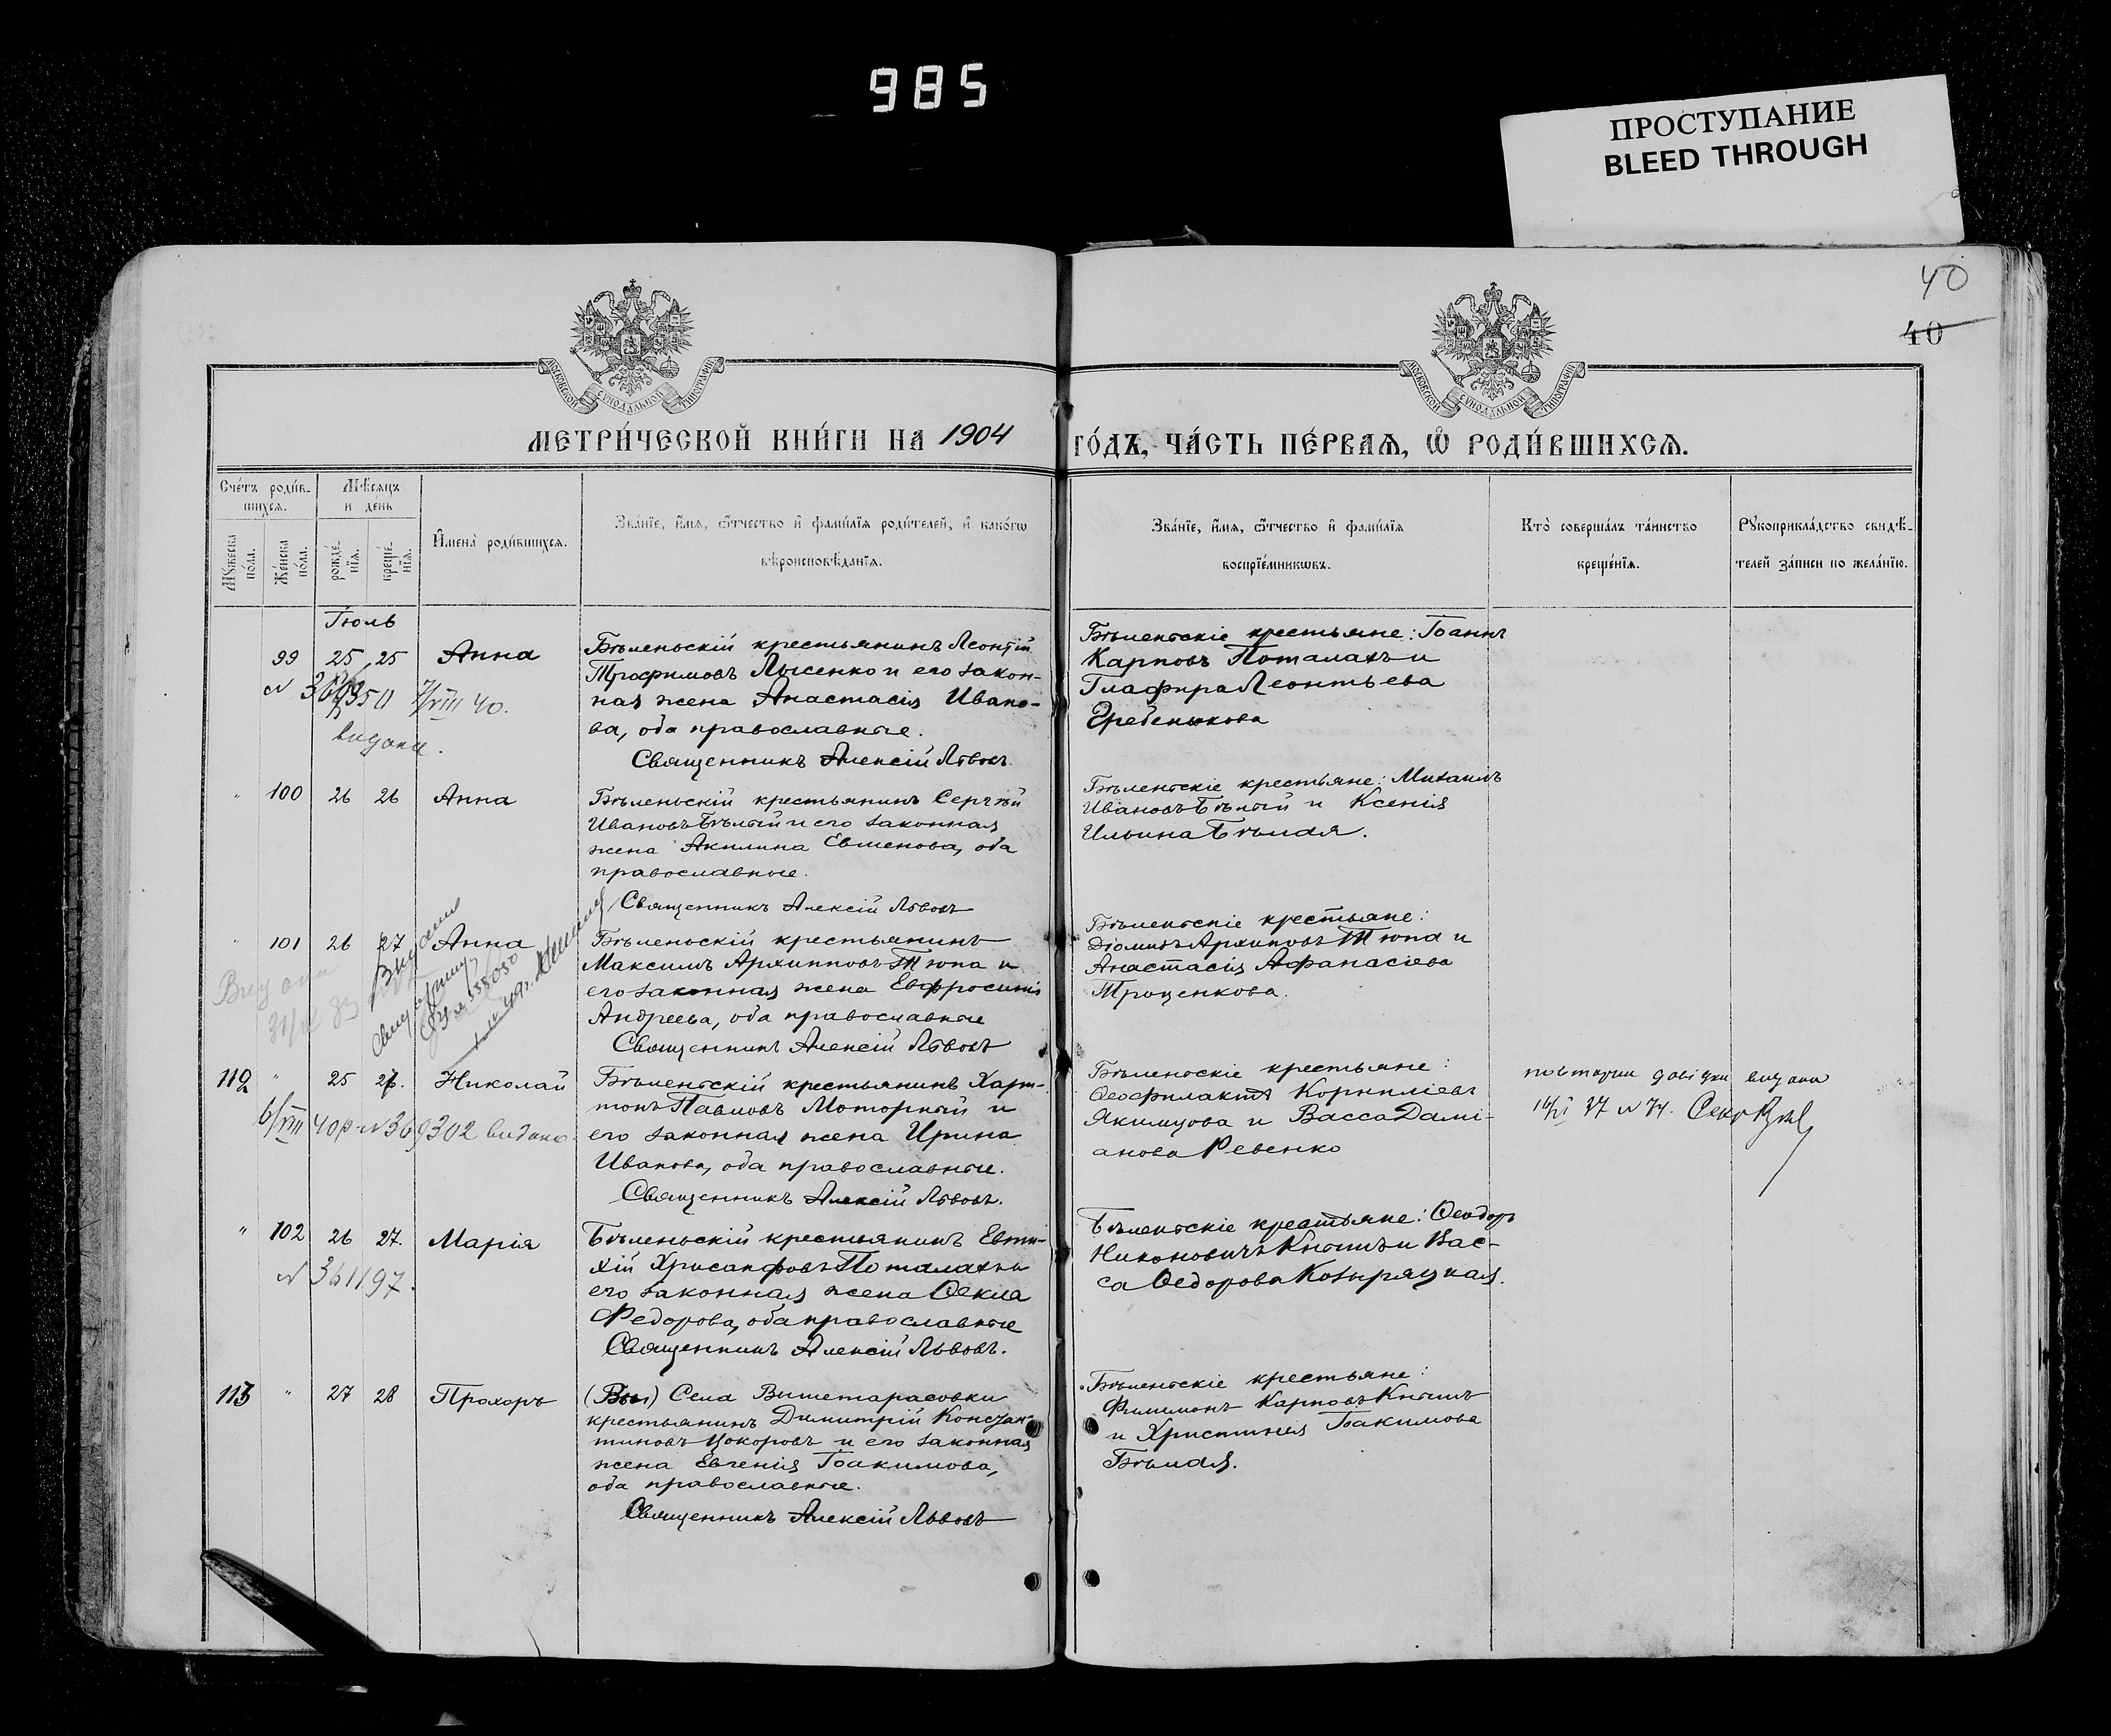 985
ПРОСТУПАНИЕ
BLEED THROUGH
40
40
МОСКОВСКОЙ СѴНОДАЛЬНОЙ ТИПОГРАФІИ
МОСКОВСКОЙ СѴНОДАЛЬНОЙ ТИПОГРАФІИ
МЕТРИ́ЧЕСКОЙ КНИ́ГИ НА 1904 ГО́ДЪ, ЧА́СТЬ ПЕ́РВАѦ, Ѡ҆ РОДИ́ВШИХСѦ.
Сче́тъ роди́в-
шихсѧ.
Мꙋ́жеска по́ла.
Же́нска по́ла.
Мѣ́сѧцъ
и день
рожде́-
нїѧ.
креще́-
нїѧ.
И҆мена̀ роди́вшихсѧ.
Зва́нїе, и҆́мѧ, ѻ҆́тчество и҆ фами́лїѧ роди́телей, и҆ како́гѡ
вѣроисповѣ́данїѧ.
Зва́нїе, и҆́мѧ, ѻ҆́тчество и҆ фами́лїѧ
воспрїе́мникѡвъ.
Кто̀ соверша́лъ та́инство
креще́нїѧ.
Рꙋкоприкла́дство свидѣ́-
телей за́писи по жела́нїю.
Іюль
99 25 25 Анна
Бѣленьскій крестьянинъ Леонтій
Трофимовъ Лысенко и его закон-
ная жена Анастасія Ивано-
ва, оба православные.
Священникъ Алексій Львовъ
Бѣленскіе крестьяне: Іоаннъ
Карповъ Поталахъ и
Глафира Леонтьева
Гребенюкова
7/VIII 40.
видана.
" 100 26 26 Анна
Бѣленьскій крестьянинъ Сергѣй
Ивановъ Бѣлый и его законная
жена Акилина Евменова, оба
православные.
Священникъ Алексій Львовъ
Бѣленскіе крестьяне: Михаилъ
Ивановъ Бѣлый и Ксенія
Ильина Бѣлая.
" 101 26 27 Анна
Бѣленьскій крестьянинъ
Максимъ Архипповъ Тюпа и
его законная жена Евфросинія
Андреева, оба православные
Священникъ Алексій Львовъ
Бѣленскіе крестьяне:
Діомидъ Архиповъ Тюпа и
Анастасія Афанасіева
Троценкова.
112 " 25 26. Николай
6/VIII 40р. №369302 видано
Бѣленскій крестьянинъ Хари-
тонъ Павловъ Моторный и
его законная жена Ирина
Иванова, оба православные.
Священникъ Алексій Львовъ.
Бѣленскіе крестьяне:
Ѳеофилактъ Корниліевъ
Якимцова и Васса Дамі-
анова Ревенко
видана
37 № 74.
" 102 26 27. Марія
№ 361197.
Бѣленьскій крестьянинъ Евти-
хій Хрисанфовъ Поталахъ и
его законная жена Ѳекла
Федорова, оба православные
Священникъ Алексій Львовъ.
Бѣленскіе крестьяне: Ѳеодоръ
Никоновичъ Кнышъ и Вас-
са Ѳедорова Козыряцкая.
113 " 27 28 Прохоръ
Села Вышетарасовки
крестьянинъ Димитрій Констан-
тиновъ Цокоровъ и его законная
жена Евгенія Іоакимова,
оба православные.
Священникъ Алексій Львовъ
Бѣленскіе крестьяне:
Филимонъ Карповъ Кнышъ
и Христинія Іоакимова
Бѣлая.